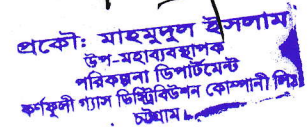 প্রকৌঃ মাহমুদুল ইসলাম
উপ-মহাব্যবস্থাপক
পরিকল্পনা ডিপার্টমেন্ট
কর্ণফুলী গ্যাস ডিষ্ট্রিবিউশন কোম্পানী লিঃ
চট্টগ্রাম।